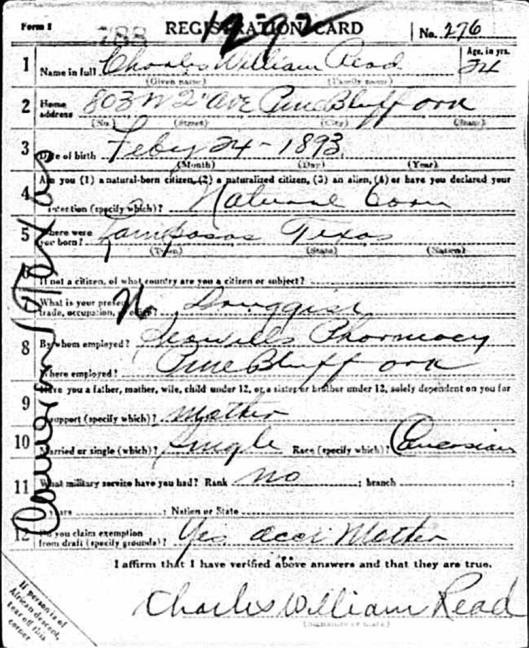 Form 1 788 REGISTRATION CARD No. 276
1292
Age, in yrs.
1 Name in full Charles William Read 24
(Given name) (Family name)
2 Home address 803 W 2" ave Pine Bluff Ark
(No.) (Street) (City) (State)
3 Date of birth Feby 24 - 1893
(Month) (Day) (Year)
4 Are you (1) a natural-born citizen, (2) a naturalized citizen, (3) an alien, (4) or have you declared your
intention (specify which)? Natural born
5 Where were you born? Lampasas Texas
(Town) (State) (Nation)
If not a citizen, of what country are you a citizen or subject?
What is your present trade, occupation, or office? Druggist
8 By whom employed? Pharmacy
Where employed? Pine Bluff Ark
9 Have you a father, mother, wife, child under 12, or a sister or brother under 12, solely dependent on you for
support (specify which)? Mother
10 Married or single (which)? Single Race (specify which)? Caucasian
11 What military service have you had? Rank no ; branch ;
years ; Nation or State
12 Do you claim exemption from draft (specify grounds)? Yes acct Mother
I affirm that I have verified above answers and that they are true.
Charles William Read
(Signature or mark)
If person is of African descent, tear off this corner